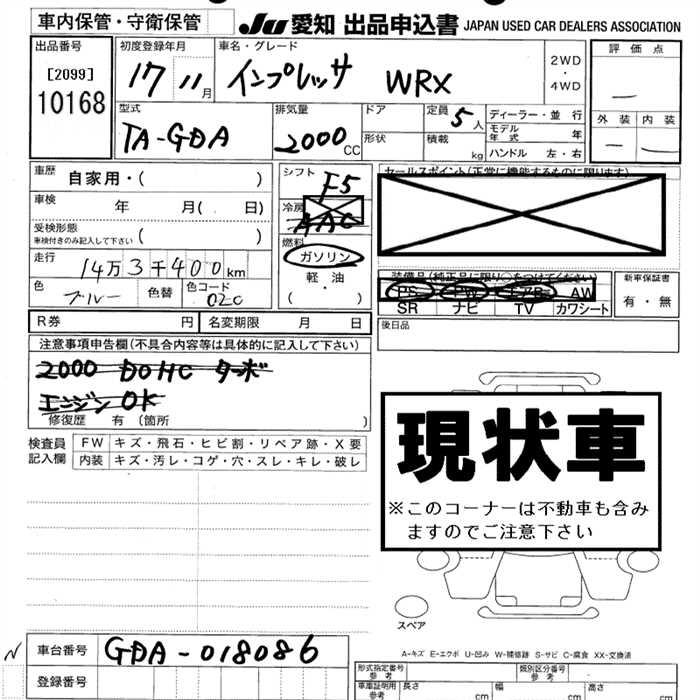 車内保管・守衛保管
JU 愛知 出品申込書 JAPAN USED CAR DEALERS ASSOCIATION
出品番号
[2099]
10168
初度登録年月
17 11月
車名・グレード
インプレッサ WRX
2WD
・
4WD
評価点
外装 内装
型式
TA-GDA
排気量
2000 CC
ドア
形状
定員 5人
積載 kg
ディーラー・並行
モデル年式 年
ハンドル 左・右
車歴 自家用・( )
車検 年 月( 日)
受検形態
車検付きのみ記入して下さい ( )
走行 14万3千400km
色 ブルー 色替 色コード 02C
シフト F5
冷房 AAC
燃料
ガソリン
軽・油
( ・ )
セールスポイント(正常に機能するものに限ります)
装備品(純正品に限り○をつけてください)
PS PW エアB AW
SR ナビ TV カワシート
新車保証書
有・無
後日品
R券 円 名変期限 月 日
注意事項申告欄(不具合内容等は具体的に記入して下さい)
2000 DOHC ターボ
エンジンOK
修復歴 有 (箇所 )
検査員
記入欄
FW キズ・飛石・ヒビ割・リペア跡・X要
内装 キズ・汚レ・コゲ・穴・スレ・キレ・破レ
現状車
※このコーナーは不動車も含み
ますのでご注意下さい
スペア
A-キズ E-エクボ U-凹み W-補修跡 S-サビ C-腐食 XX-交換済
N 車台番号 GDA-018086
登録番号
形式指定番号
参考
類別区分番号
参考
車庫証明用
参考
長さ cm 幅 cm 高さ cm